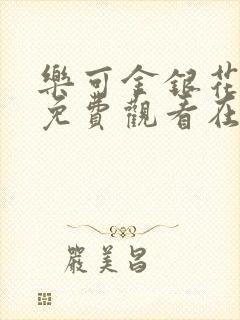 樂可金銀花
免費觀看在
嚴美昌